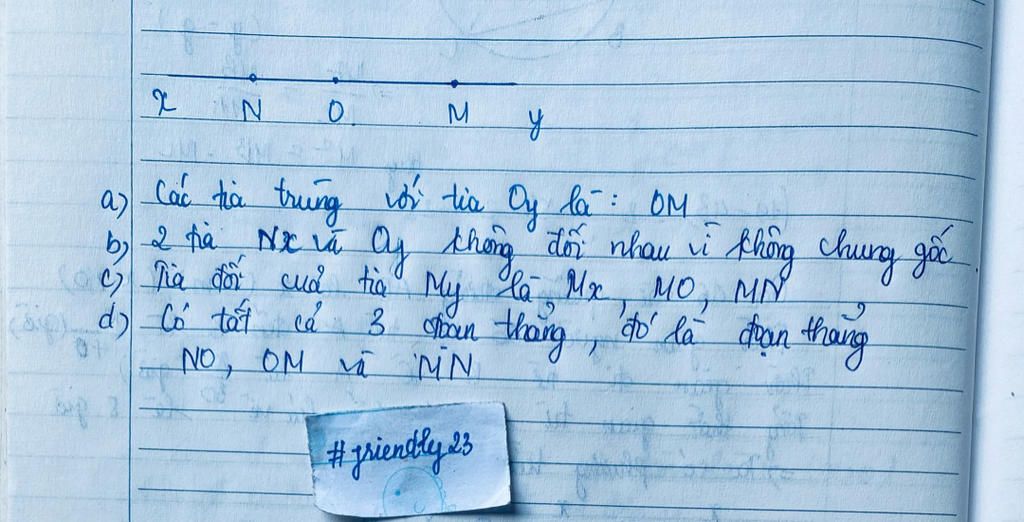 x N O M y
a) Các tia trùng với tia Oy là: OM
b) 2 tia Nx và Oy không đối nhau vì không chung gốc.
c) Tia đối của tia My là Mx, MO, MN
d) Có tất cả 3 đoạn thẳng, đó là đoạn thẳng
NO, OM và MN
#friendly23